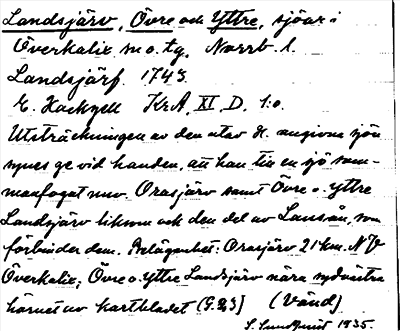 Landsjärv, Övre och Yttre, sjöar i
Överkalix sn o. tg. Norrb. l.
Landsjärf. 1743.
E. Hackzell KrA, XI, D, 1:o.
Utsträckningen av den utav H. angivna sjön
synes ge vid handen, att han till en sjö sam-
manfogat nuv. Orasjärv samt Övre o. Yttre
Landsjärv liksom ock den del av Lansån, som
förbinder dem. Belägenhet: Orasjärv 21 km. NV
Överkalix; Övre o. Yttre Landsjärv nära sydvästra
hörnet av kartbladet (Vänd)
S. Lundquist 1935.